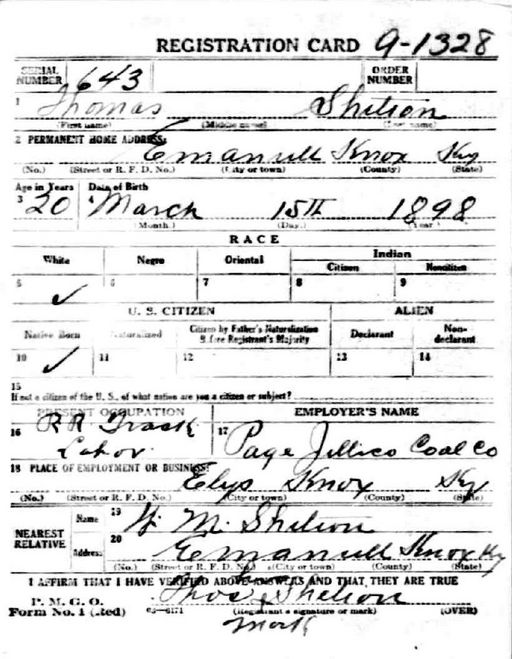 REGISTRATION CARD 9-1328
SERIAL NUMBER 643 ORDER NUMBER
1 Thomas Shelton
(First name) (Middle name) (Last name)
2 PERMANENT HOME ADDRESS:
Emanuell Knox Ky
(No.) (Street or R. F. D. No.) (City or town) (County) (State)
Age in Years Date of Birth
3 20 4 March 15th 1898
(Month.) (Day.) (Year.)
RACE
White Negro Oriental Indian
Citizen Noncitizen
5 ✓ 6 7 8 9
U. S. CITIZEN ALIEN
Native Born Naturalized Citizen by Father's Naturalization Before Registrant's Majority Declarant Non-declarant
10 ✓ 11 12 13 14
15
If not a citizen of the U. S., of what nation are you a citizen or subject?
PRESENT OCCUPATION EMPLOYER'S NAME
16 R R Track 17 Page Jillico Coal Co
Labor
18 PLACE OF EMPLOYMENT OR BUSINESS:
Elys Knox Ky
(No.) (Street or R. F. D. No.) (City or town) (County) (State)
NEAREST RELATIVE Name 19 M. Shelton
Address 20 Emanuell Knox Ky
(No.) (Street or R. F. D. No.) (City or town) (County) (State)
I AFFIRM THAT I HAVE VERIFIED ABOVE ANSWERS AND THAT THEY ARE TRUE
P. M. G. O. Thos Shelton
Form No. 1 (Red) 03-6171 (Registrant's signature or mark) (OVER)
mark